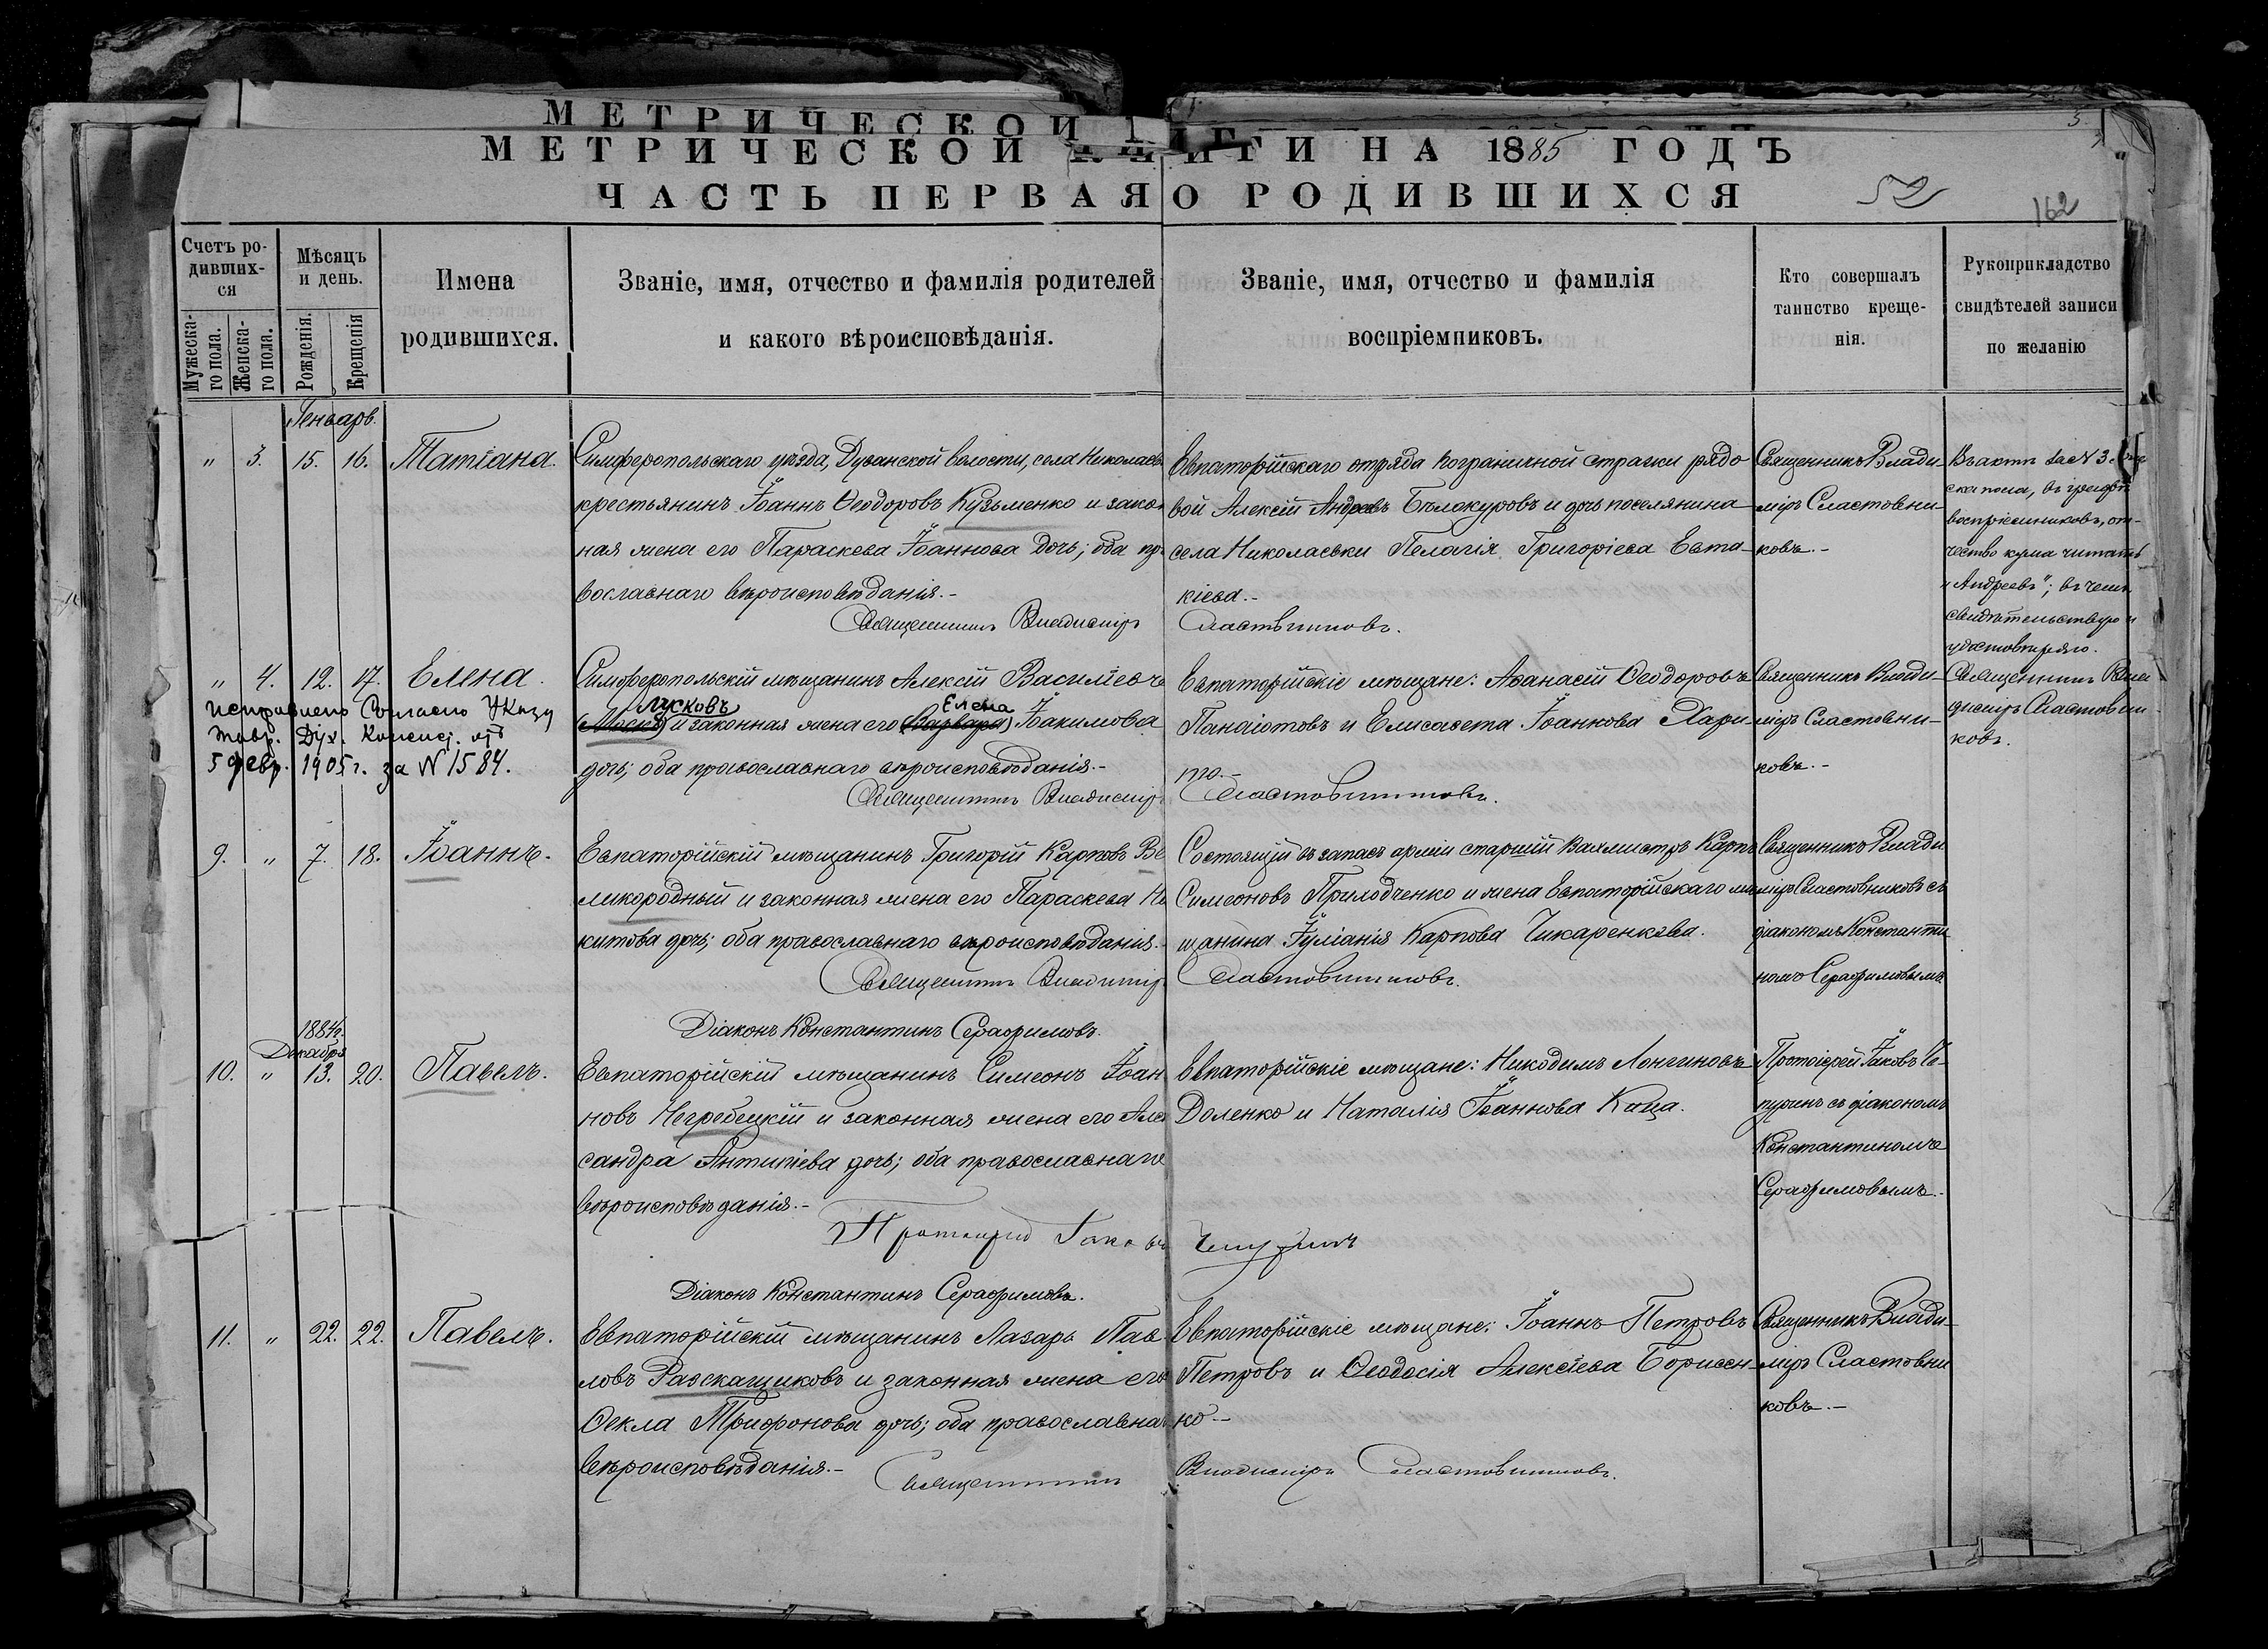 МЕТРИЧЕСКОЙ
МЕТРИЧЕСКОЙ КНИГИ НА 1885 ГОДЪ
ЧАСТЬ ПЕРВАЯ О РОДИВШИХСЯ
52
162
Счетъ ро-
дивших-
ся
Мужеска-
го пола.
Женска-
го пола.
Мѣсяцъ
и день.
Рожденія.
Крещенія
Имена
родившихся.
Званіе, имя, отчество и фамилія родителей
и какого вѣроисповѣданія.
Званіе, имя, отчество и фамилія
воспріемниковъ.
Кто совершалъ
таинство креще-
нія.
Рукоприкладство
свидѣтелей записи
по желанію
Генваръ.
" 3. 15. 16. Татіана.
Симферопольскаго уѣзда, Дуванской волости, села Николаев
крестьянинъ Іоаннъ Ѳеодоровъ Кузьменко и закон
ная жена его Параскева Іоаннова дочь; оба пра
вославнаго вѣроисповѣданія.-
Священникъ Владиміръ Сластовниковъ.
Евпаторійскаго отряда пограничной стражи рядо
вой Алексій Андреевъ Бѣлокуровъ и дочь поселянина
села Николаевки Пелагія Григоріева Евта-
кіева.-
Священникъ Влади-
міръ Сластовни-
ковъ.-
Въ актѣ за N 3 жен
ска пола, въ графѣ
воспріемниковъ, от-
чество кума читать
"Андреевъ"; въ чемъ
свидѣтельствую и
удостовѣряю.
Священникъ Вла-
диміръ Сластовни-
ковъ.
" 4. 12. 17. Елена.
Исправлено Согласно Указу
Тавр. Дух. Консист. отъ
5 февр. 1905 г. за N 1584.
Симферопольскій мѣщанинъ Алексій Василіевъ
Лусковъ Елена
и законная жена его (Варвара) Іоакимова
дочь; оба православнаго вѣроисповѣданія.-
Священникъ Владиміръ Сластовниковъ.
Евпаторійскіе мѣщане: Аѳанасій Ѳеодоровъ
Панаіотовъ и Елисавета Іоаннова Хари-
то.-
Священникъ Влади-
міръ Сластовни-
ковъ.-
9. " 7. 18. Іоаннъ.
Евпаторійскій мѣщанинъ Григорій Карповъ Ве
ликородный и законная жена его Параскева Ни
китова дочь; оба православнаго вѣроисповѣданія.-
Священникъ Владиміръ Сластовниковъ.
Діаконъ Константинъ Серафимовъ.
Состоящій въ запасѣ арміи старшій Вахмистръ Карпъ
Симеоновъ Прилодченко и жена Евпаторійскаго мѣ
щанина Іуліанія Карпова Чикаренкова.
Священникъ Влади
міръ Сластовниковъ съ
діакономъ Константи
номъ Серафимовымъ.
1884 г.
Декабря
10. " 13. 20. Павелъ.
Евпаторійскій мѣщанинъ Симеонъ Іоан
новъ Негребецкій и законная жена его Алек
сандра Антипіева дочь; оба православнаго
вѣроисповѣданія.-
Протоіерей Іаковъ Чепуринъ
Діаконъ Константинъ Серафимовъ.
Евпаторійскіе мѣщане: Никодимъ Лонгиновъ
Доленко и Наталія Іоаннова Каца.
Протоіерей Іаковъ Че-
пуринъ съ діакономъ
Константиномъ
Серафимовымъ.-
11. " 22. 22. Павелъ.
Евпаторійскій мѣщанинъ Лазарь Пав
ловъ Разскащиковъ и законная жена его
Ѳекла Трифонова дочь; оба православна
вѣроисповѣданія.-
Священникъ Владиміръ Сластовниковъ.
Евпаторійскіе мѣщане: Іоаннъ Петровъ
Петровъ и Ѳеодосія Алексіева Борисен-
ко.-
Священникъ Влади-
міръ Сластовни
ковъ.-